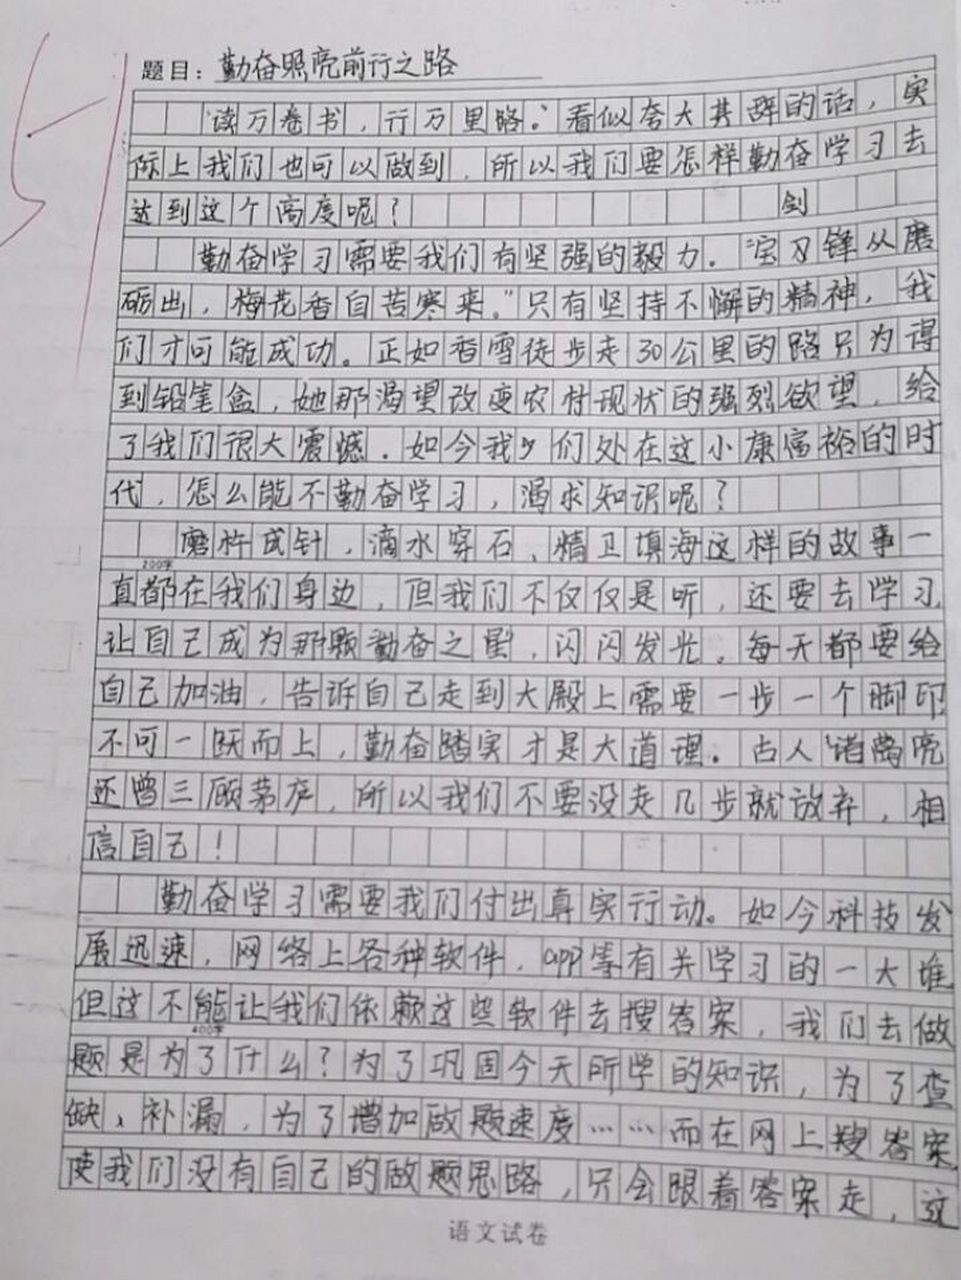 51
题目：勤奋照亮前行之路
"读万卷书，行万里路。"看似夸大其辞的话，实
际上我们也可以做到，所以我们要怎样勤奋学习去
达到这个高度呢？
剑
勤奋学习需要我们有坚强的毅力。"宝刀锋从磨
砺出，梅花香自苦寒来。"只有坚持不懈的精神，我
们才可能成功。正如香雪徒步走30公里的路只为得
到铅笔盒，她那渴望改变农村现状的强烈欲望，给
了我们很大震撼。如今我们处在这小康富裕的时
代，怎么能不勤奋学习，渴求知识呢？
磨杵成针，滴水穿石、精卫填海这样的故事一
200字
直都在我们身边，但我们不仅仅是听，还要去学习，
让自己成为那颗勤奋之星，闪闪发光。每天都要给
自己加油，告诉自己走到大殿上需要一步一个脚印
不可一跃而上，勤奋踏实才是大道理。古人诸葛亮
还曾三顾茅庐，所以我们不要没走几步就放弃，相
信自己！
勤奋学习需要我们付出真实行动。如今科技发
展迅速，网络上各种软件，app等有关学习的一大堆
但这不能让我们依赖这些软件去搜答案，我们去做
400字
题是为了什么？为了巩固今天所学的知识，为了查
缺、补漏，为了增加做题速度……而在网上搜答案
使我们没有自己的做题思路，只会跟着答案走，这
语文试卷